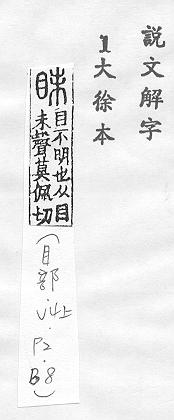 說文解字
1大徐本
眛
目不明也从目
未聲莫佩切
(目部.四上.P2.B8)